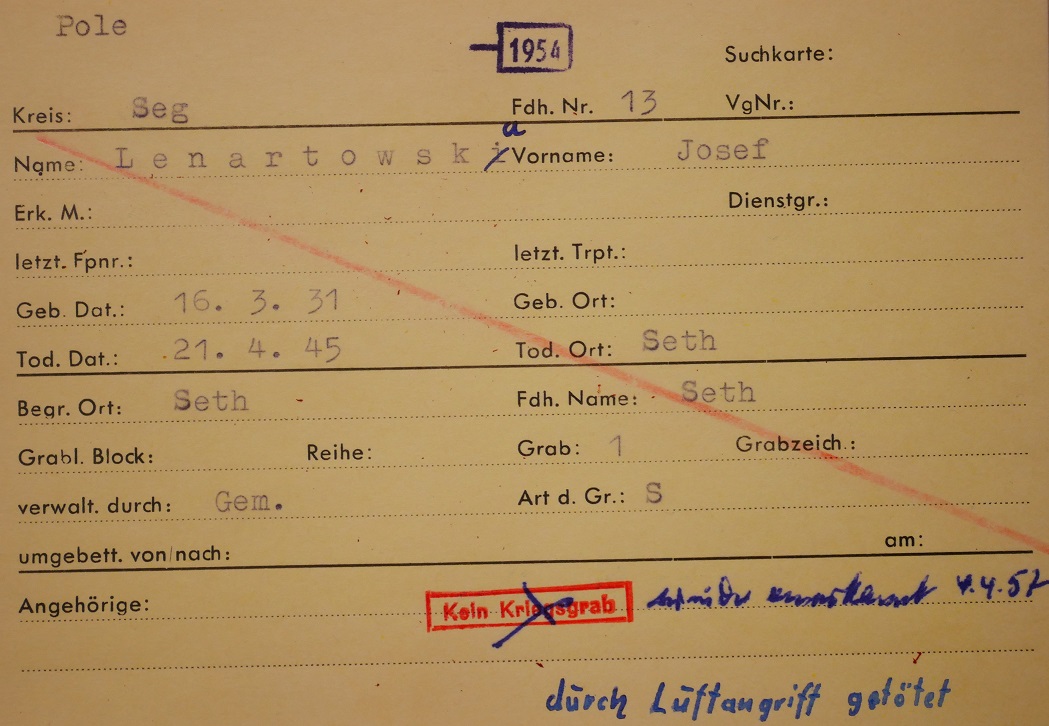 Pole
1954
Suchkarte:
Kreis: Seg Fdh. Nr. 13 VgNr.:
a
Name: Lenartowski Vorname: Josef
Erk. M.: Dienstgr.:
letzt. Fpnr.: letzt. Trpt.:
Geb. Dat.: 16. 3. 31 Geb. Ort:
Tod. Dat.: 21. 4. 45 Tod. Ort: Seth
Begr. Ort: Seth Fdh. Name: Seth
Grabl. Block: Reihe: Grab: 1 Grabzeich.:
verwalt. durch: Gem. Art d. Gr.: S
umgebett. von/nach: am:
Angehörige: Kein Kriegsgrab wieder anerkannt 4.4.57
durch Luftangriff getötet